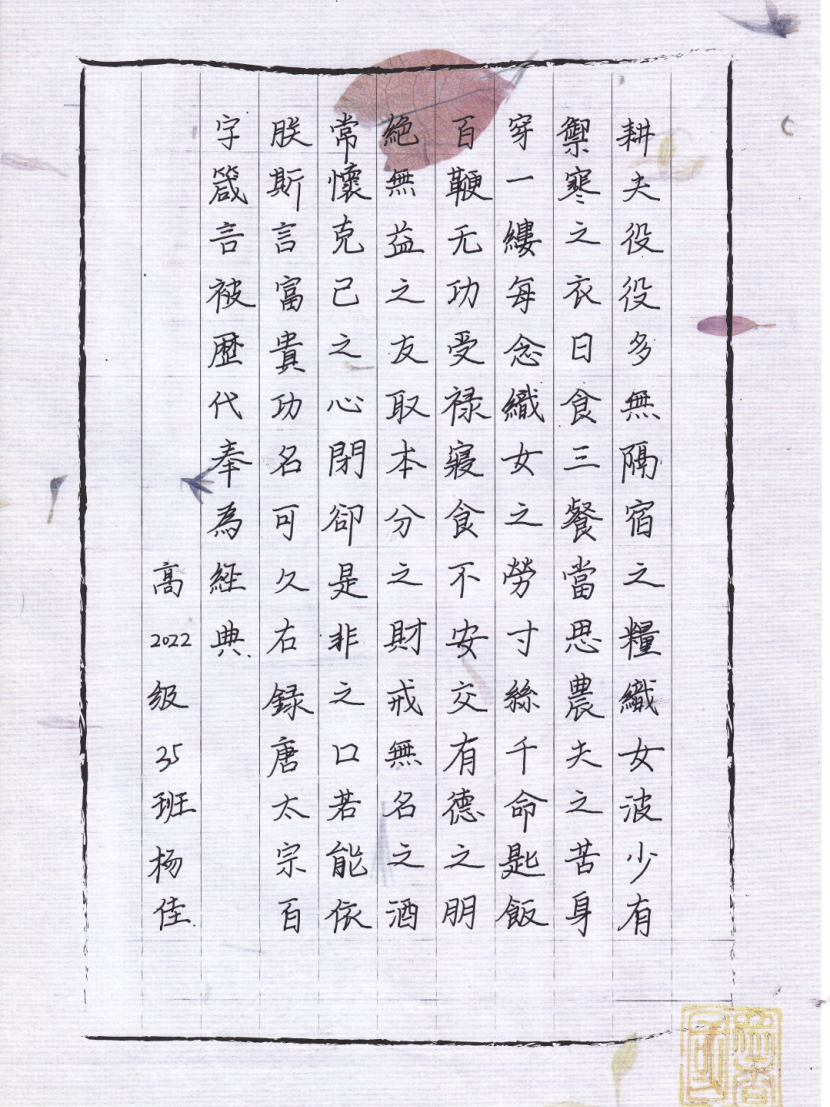 耕夫役役多無隔宿之糧織女波少有
禦寒之衣日食三餐當思農夫之苦身
穿一縷每念織女之勞寸絲千命匙飯
百鞭无功受禄寢食不安交有德之朋
絶無益之友取本分之財戒無名之酒
常懷克己之心閉卻是非之口若能依
朕斯言富貴功名可久右録唐太宗百
字箴言被歷代奉為經典
高2022级35班杨佳